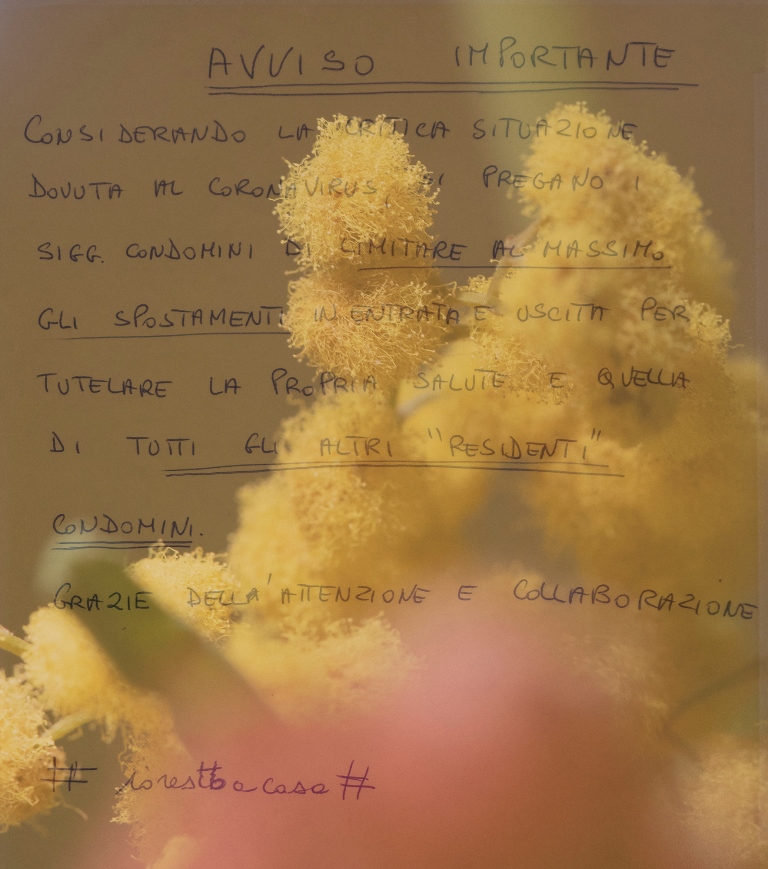 AVVISO IMPORTANTE
CONSIDERANDO LA CRITICA SITUAZIONE
DOVUTA AL CORONAVIRUS, SI PREGANO I
SIGG. CONDOMINI DI LIMITARE AL MASSIMO
GLI SPOSTAMENTI IN ENTRATA E USCITA PER
TUTELARE LA PROPRIA SALUTE E QUELLA
DI TUTTI GLI ALTRI "RESIDENTI"
CONDOMINI.
GRAZIE DELLA' ATTENZIONE E COLLABORAZIONE
# iorestoacasa #